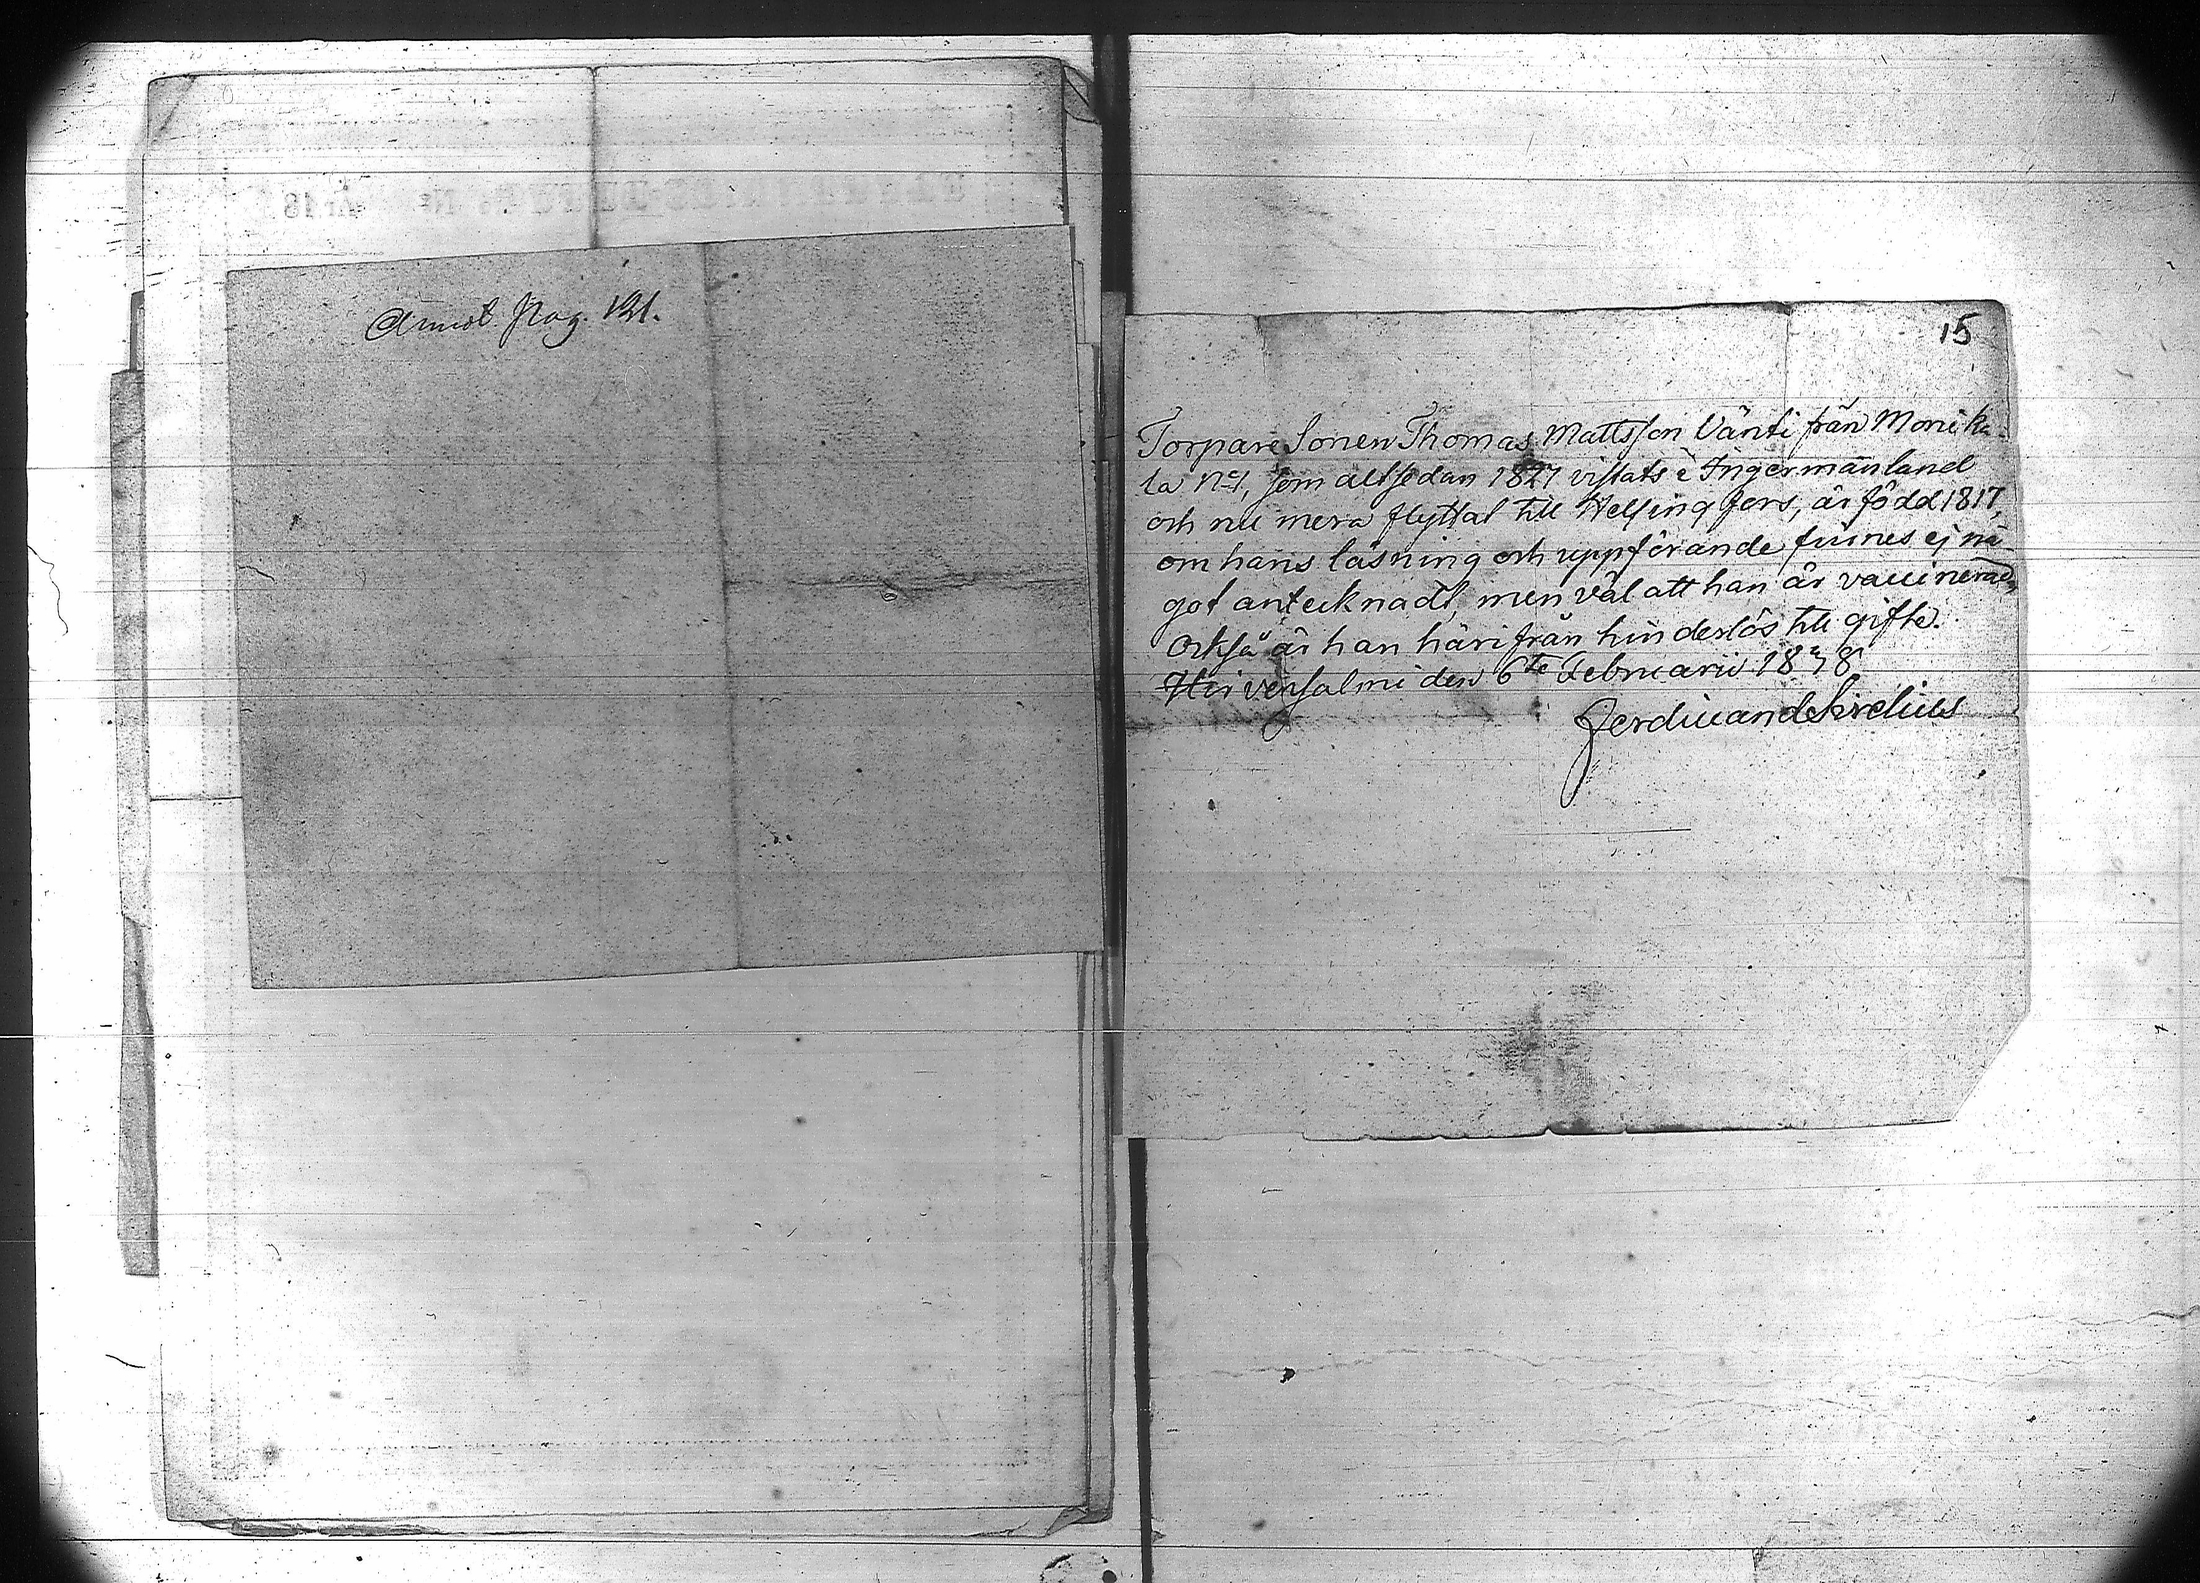 Annot. Pag. 121.
15
Torpare Sonen Thomas Mattsson Vänti från Monika-
la No 1, som altsedan 1827 vistats i Ingermanland
och nu mera flyttat till Helsingfors, är född 1817,
om hans läsning och uppförande finnes ej nå-
got antecknadt, men väl att han är vaccinerad,
Också är han härifrån hinderlös till gifte.
Hirvensalmi den 6te Februarii 1838
Ferdinand Sirelius